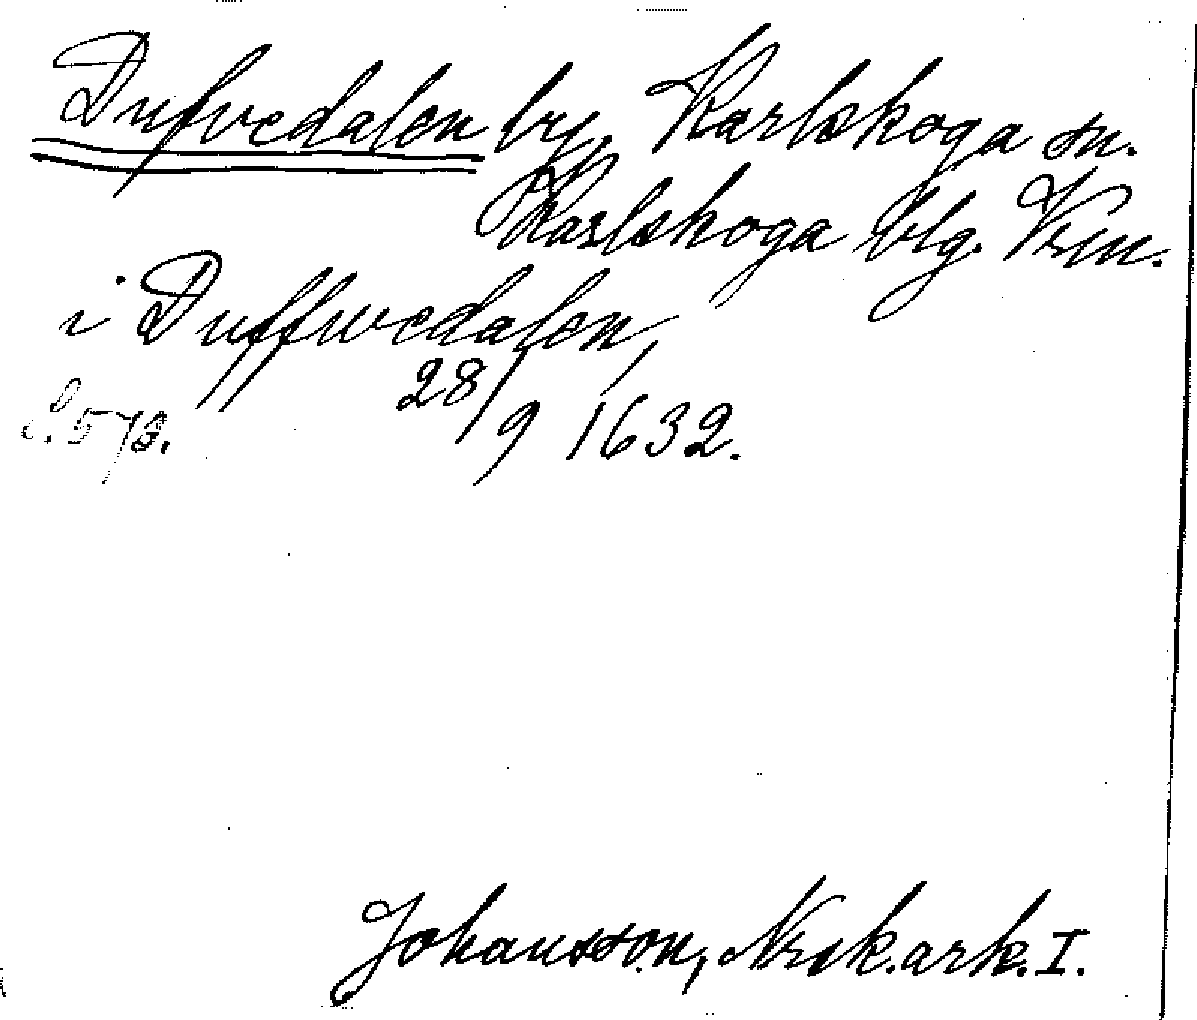 Dufvedalen by, Karlskoga sn.
Karlskoga blg. Vrm.
i Duffwedalen,
28/9 1632.
s. 573.
Johansson, Norsk. ark. I.